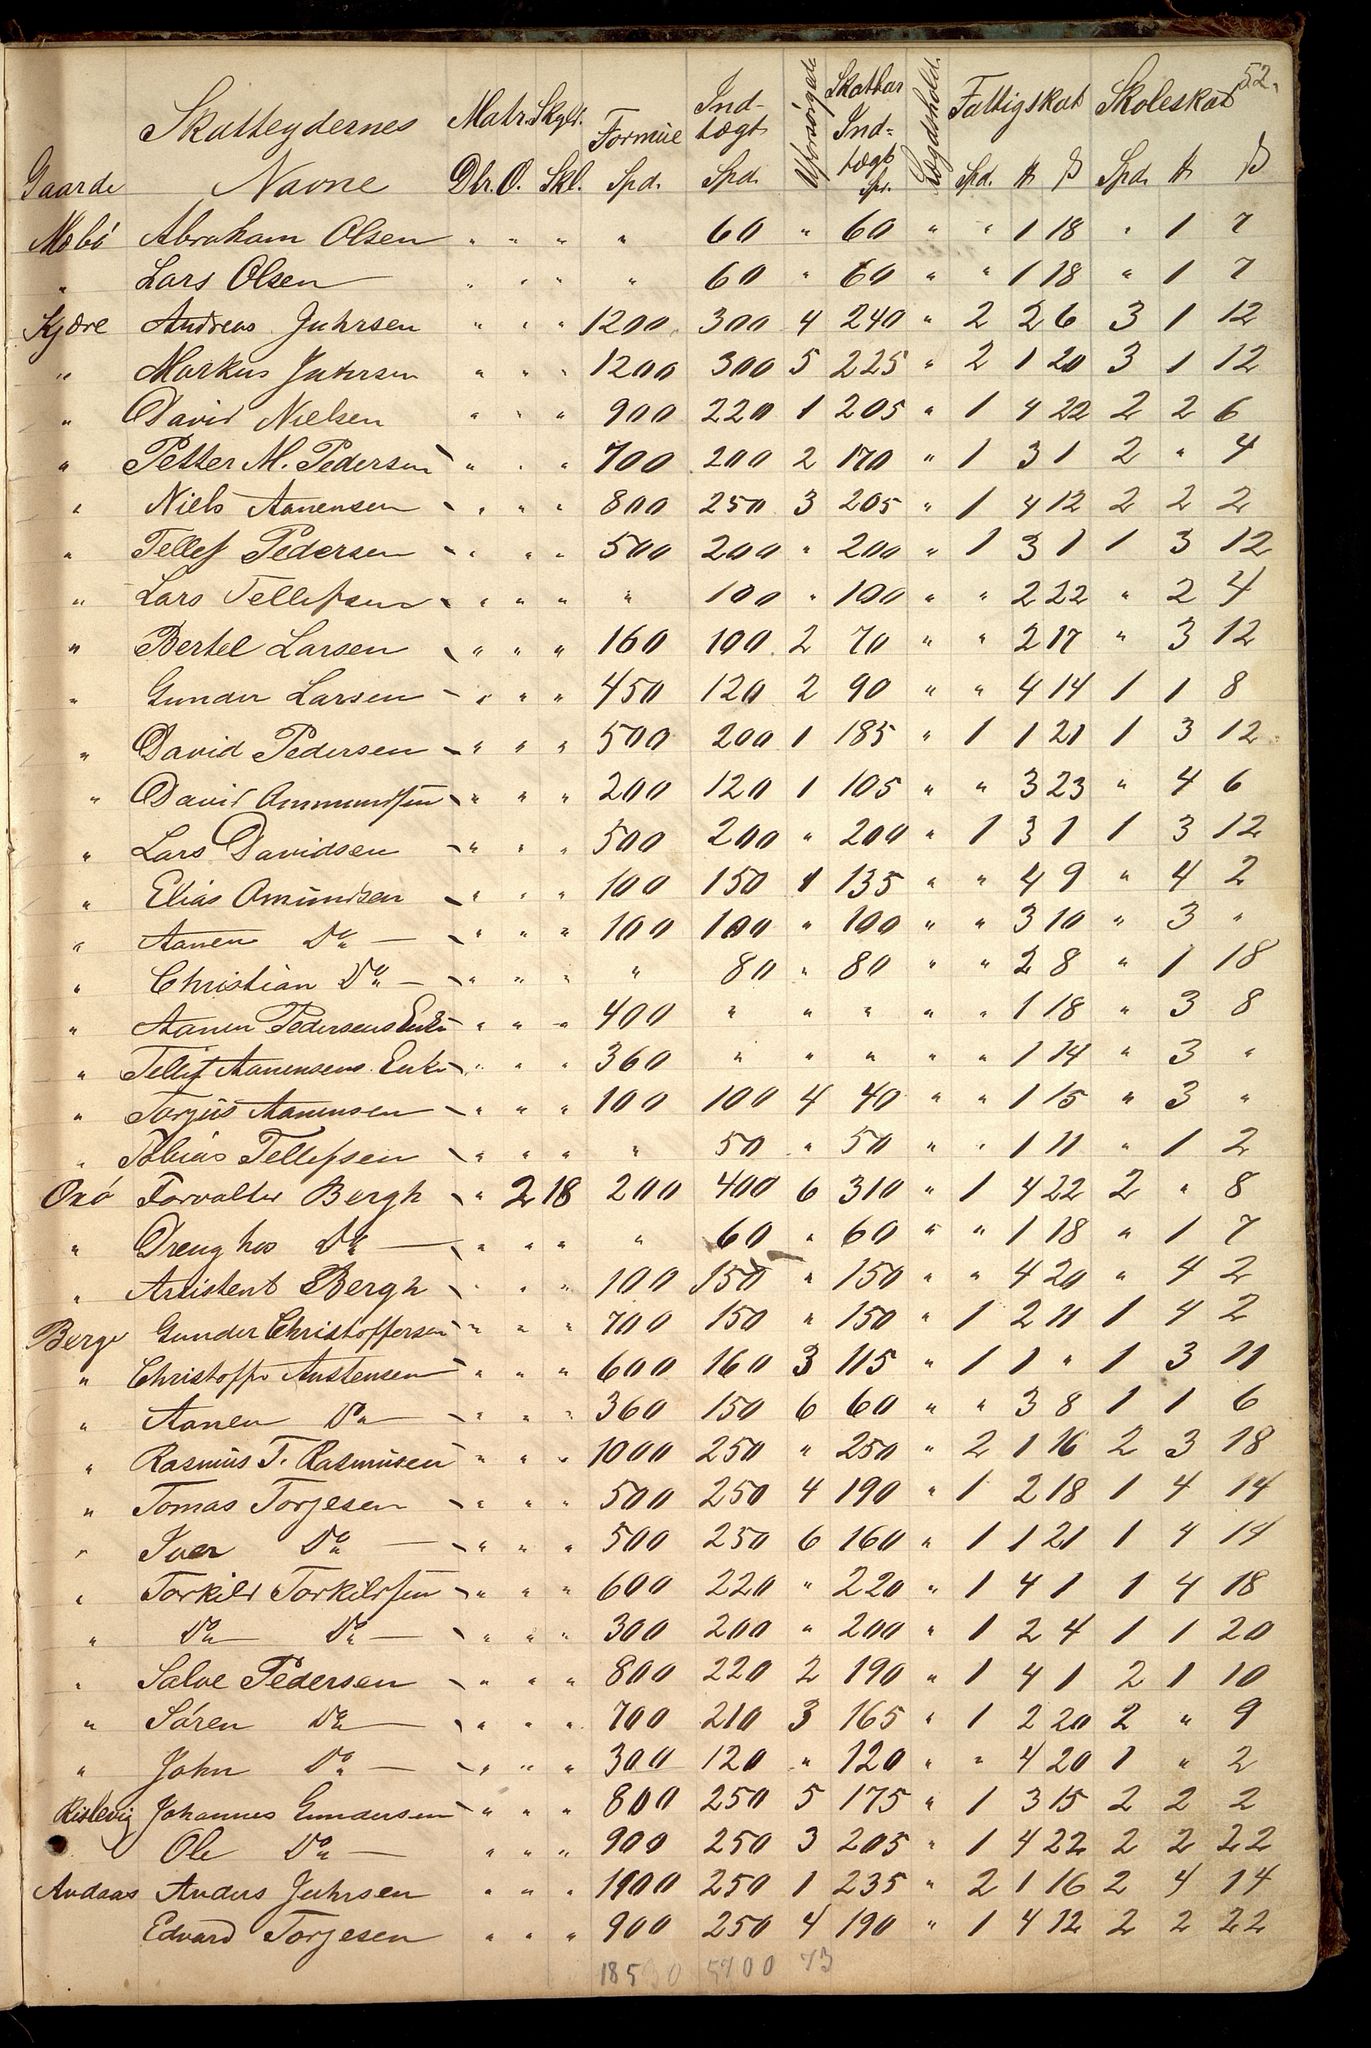 52.
Gaarde Skatteydernes Navne Matr. Skyld. Dlr. O. Skl. Formue Spd. Indtægt Spd. Uforsørgede Skatbar Indtægt Sp. Lægdshold. Fattigskat Spd. # ß Skoleskat Spd. # ß
Mebö Abraham Olsen " " " " 60 " 60 " " 1 18 " 1 7
" Lars Olsen " " " " 60 " 60 " " 1 18 " 1 7
Kjære Andreas Juhrsen " " " 1200 300 4 240 " 2 2 6 3 1 12
" Markus Juhrsen " " " 1200 300 5 225 " 2 1 20 3 1 12
" David Nielsen " " " 900 220 1 205 " 1 4 22 2 2 6
" Petter M. Pedersen " " " 700 200 2 170 " 1 3 1 2 " 4
" Niels Aanensen " " " 800 250 3 205 " 1 4 12 2 2 2
" Tellef Pedersen " " " 500 200 " 200 " 1 3 1 1 3 12
" Lars Tellefsen " " " " 100 " 100 " " 2 22 " 2 4
" Bertel Larsen " " " 160 100 2 70 " " 2 17 " 3 12
" Gunder Larsen " " " 450 120 2 90 " " 4 14 1 1 8
" David Pedersen " " " 500 200 1 185 " 1 1 21 1 3 12
" David Ammundsen " " " 200 120 1 105 " " 3 23 " 4 6
" Lars Davidsen " " " 500 200 " 200 " 1 3 1 1 3 12
" Elias Amundsen " " " 100 150 1 135 " " 4 9 " 4 2
" Aanen Do — " " " 100 100 " 100 " " 3 10 " 3 "
" Christian Do — " " " " 80 " 80 " " 2 8 " 1 18
" Aanen Pedersens Enke " " " 400 " " " " " 1 18 " 3 8
" Tellef Aanensens Enke " " " 360 " " " " " 1 14 " 3 "
" Torjus Aanensen " " " 100 100 4 40 " " 1 15 " 3 "
" Tobias Tellefsen " " " " 50 " 50 " " 1 11 " 1 2
Oxö Forvalter Bergh " 2 18 200 400 6 310 " 1 4 22 2 " 8
" Dreng hos Do — " " " " 60 " 60 " " 1 18 " 1 7
" Assistent Bergh " " " 100 150 " 150 " " 4 20 " 4 2
Berge Gunder Christoffersen " " " 700 150 " 150 " 1 2 11 1 4 2
" Christoffr Austensen " " " 600 160 3 115 " 1 1 " 1 3 11
" Aanen Do — " " " 360 150 6 60 " " 3 8 1 1 6
" Rasmus T. Rasmusen " " " 1000 250 " 250 " 2 1 16 2 3 18
" Tomas Torjesen " " " 500 250 4 190 " 1 2 18 1 4 14
" Iver Do — " " " 500 250 6 160 " 1 1 21 1 4 14
" Torkild Torkildsen " " " 600 220 " 220 " 1 4 1 1 4 18
" Do — Do — " " " 300 200 " 200 " 1 2 4 1 1 20
" Salve Pedersen " " " 800 220 2 190 " 1 4 1 2 1 10
" Sören Do — " " " 700 210 3 165 " 1 2 20 2 " 9
" John Do — " " " 300 120 " 120 " " 4 20 1 " 2
Rislevig Johannes Gundersen " " " 800 250 5 175 " 1 3 15 2 2 2
Ole Do — " " " 900 250 3 205 " 1 4 22 2 2 22
Andaas Anders Juhrsen " " " 1900 250 1 235 " 2 1 16 2 4 14
Edvard Torjesen " " " 900 250 4 190 " 1 4 12 2 2 22
18530 5700 73